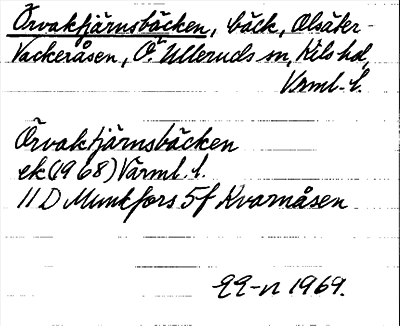 Örvaktjärnsbäcken, bäck, Olsäter-
Vackeråsen, Ö. Ulleruds sn, Kils hd,
Värml. l.
Örvaktjärnsbäcken
ek (1968) Värml. l.
11 D Munkfors 5f Kvarnåsen
1969.